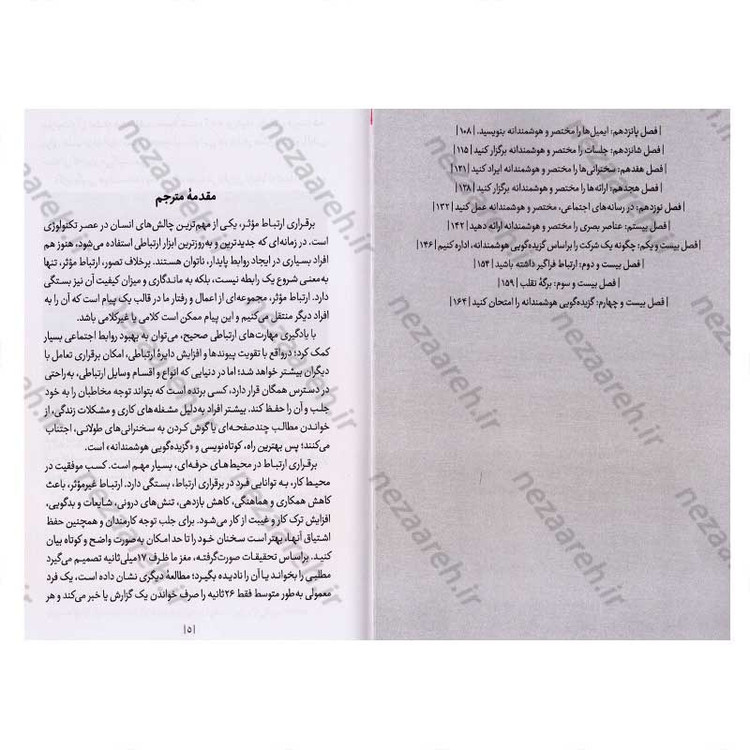 | فصل پانزدهم: ایمیل‌ها را مختصر و هوشمندانه بنویسید. | ۱۰۸ |
| فصل شانزدهم: جلسات را مختصر و هوشمندانه برگزار کنید | ۱۱۵ |
| فصل هفدهم: سخنرانی‌ها را مختصر و هوشمندانه ایراد کنید | ۱۲۱ |
| فصل هجدهم: ارائه‌ها را مختصر و هوشمندانه برگزار کنید | ۱۲۸ |
| فصل نوزدهم: در رسانه‌های اجتماعی، مختصر و هوشمندانه عمل کنید | ۱۳۲ |
| فصل بیستم: عناصر بصری را مختصر و هوشمندانه ارائه دهید | ۱۴۲ |
| فصل بیست و یکم: چگونه یک شرکت را براساس گزیده‌گویی هوشمندانه، اداره کنیم | ۱۴۶ |
| فصل بیست و دوم: ارتباط فراگیر داشته باشید | ۱۵۴ |
| فصل بیست و سوم: برگهٔ تقلب | ۱۵۹ |
| فصل بیست و چهارم: گزیده‌گویی هوشمندانه را امتحان کنید | ۱۶۴ |
مقدمهٔ مترجم
برقراری ارتباط مؤثر، یکی از مهم‌ترین چالش‌های انسان در عصر تکنولوژی
است. در زمانه‌ای که جدیدترین و به‌روزترین ابزار ارتباطی استفاده می‌شود، هنوز هم
افراد بسیاری در ایجاد روابط پایدار، ناتوان هستند. برخلاف تصور، ارتباط مؤثر، تنها
به‌معنی شروع یک رابطه نیست، بلکه به ماندگاری و میزان کیفیت آن نیز بستگی
دارد. ارتباط مؤثر، مجموعه‌ای از اعمال و رفتار ما در قالب یک پیام است که آن را به
افراد دیگر منتقل می‌کنیم و این پیام ممکن است کلامی یا غیرکلامی باشد.
با یادگیری مهارت‌های ارتباطی صحیح، می‌توان به بهبود روابط اجتماعی بسیار
کمک کرد؛ درواقع با تقویت پیوندها و افزایش دایرهٔ ارتباطی، امکان برقراری تعامل با
دیگران بیشتر خواهد شد؛ اما در دنیایی که انواع و اقسام وسایل ارتباطی، به‌راحتی
در دسترس همگان قرار دارد، کسی برنده است که بتواند توجه مخاطبان را به خود
جلب و آن را حفظ کند. بیشتر افراد به‌دلیل مشغله‌های کاری و مشکلات زندگی، از
خواندن مطالب چندصفحه‌ای یا گوش کردن به سخنرانی‌های طولانی، اجتناب
می‌کنند؛ پس بهترین راه، کوتاه‌نویسی و «گزیده‌گویی هوشمندانه» است.
برقراری ارتباط در محیط‌های حرفه‌ای، بسیار مهم است. کسب موفقیت در
محیط کار، به توانایی فرد در برقراری ارتباط، بستگی دارد. ارتباط غیرمؤثر، باعث
کاهش همکاری و هماهنگی، کاهش بازدهی، تنش‌های درونی، شایعات و بدگویی،
افزایش ترک کار و غیبت از کار می‌شود. برای جلب توجه کارمندان و همچنین حفظ
اشتیاق آنها، بهتر است سخنان خود را تا حد امکان به‌صورت واضح و کوتاه بیان
کنید. براساس تحقیقات صورت‌گرفته، مغز ما ظرف ۱۷میلی‌ثانیه تصمیم می‌گیرد
مطلبی را بخواند یا آن را نادیده بگیرد؛ مطالعهٔ دیگری نشان داده است، یک فرد
معمولی به‌طور متوسط فقط ۲۶ثانیه را صرف خواندن یک گزارش یا خبر می‌کند و هر
| ۵ |
nezaareh.ir